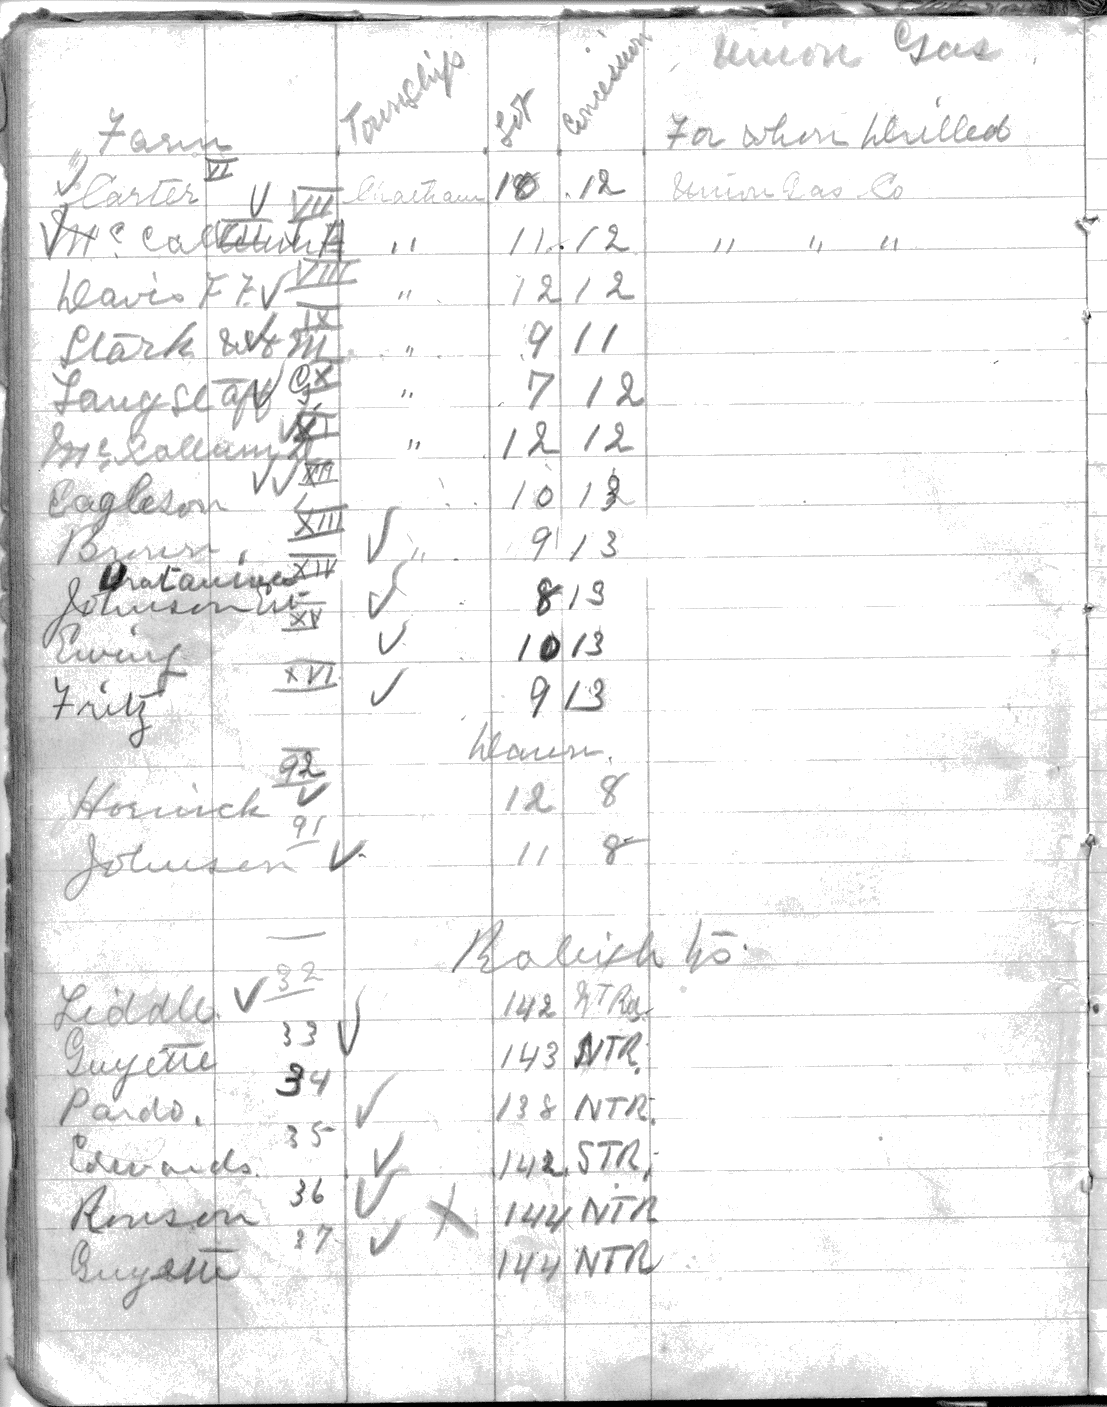 Union Gas
Farm Townships Lot Concession For whom Drilled
Carter VI Chatham 18 12 Union Gas Co
Mc Callum A VII " 11 12 " " "
Davis F F VIII " 12 12
Stark IX " 9 11
Langstaff G X " 7 12
Mc Callum XI " 12 12
Eagleson XII 10 13
Brown XIII " 9 13
XIV
Johnson 8 13
Ewing XV 10 13
Fritz XVI 9 13
Dawn.
Hornick 92 12 8
Johnson 91 11 8
Raleigh
Liddle 32 142
Guyette 33 143 NTR
Pardo. 34 138 NTR.
Edwards. 35 142 STR.
Ronson 36 X 144 NTR
Guyette 37 144 NTR